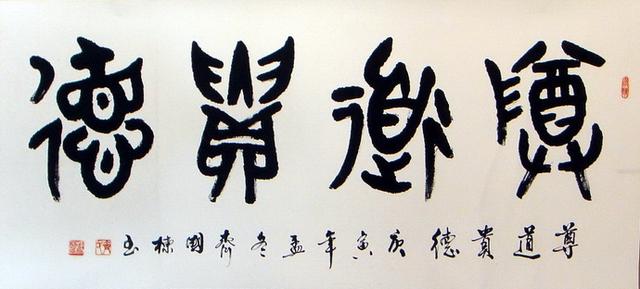 尊道貴德
尊道貴德庚寅年孟冬齊國棟書